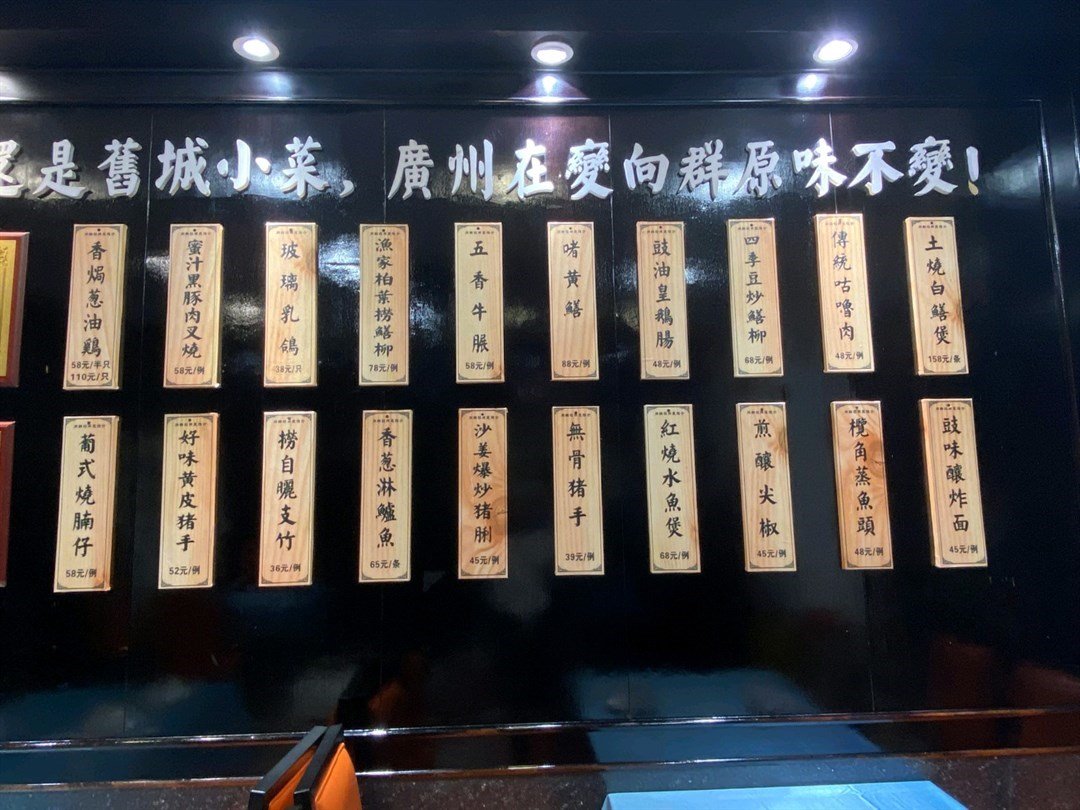 還是舊城小菜，廣州在變向群原味不變！
香焗葱油鷄
58元/半只
110元/只
蜜汁黑豚肉叉燒
58元/例
玻璃乳鴿
38元/只
漁家柏葉撈鱔柳
78元/例
五香牛脹
58元/例
啫黃鱔
88元/例
豉油皇鵝腸
48元/例
四季豆炒鱔柳
68元/例
傳統咕嚕肉
48元/例
土燒白鱔煲
158元/条
葡式燒腩仔
58元/例
好味黃皮猪手
52元/例
撈自曬支竹
36元/例
香葱淋鱸魚
65元/条
沙姜爆炒猪脷
45元/例
無骨猪手
39元/例
紅燒水魚煲
68元/例
煎釀尖椒
45元/例
欖角蒸魚頭
48元/例
豉味釀炸面
45元/例